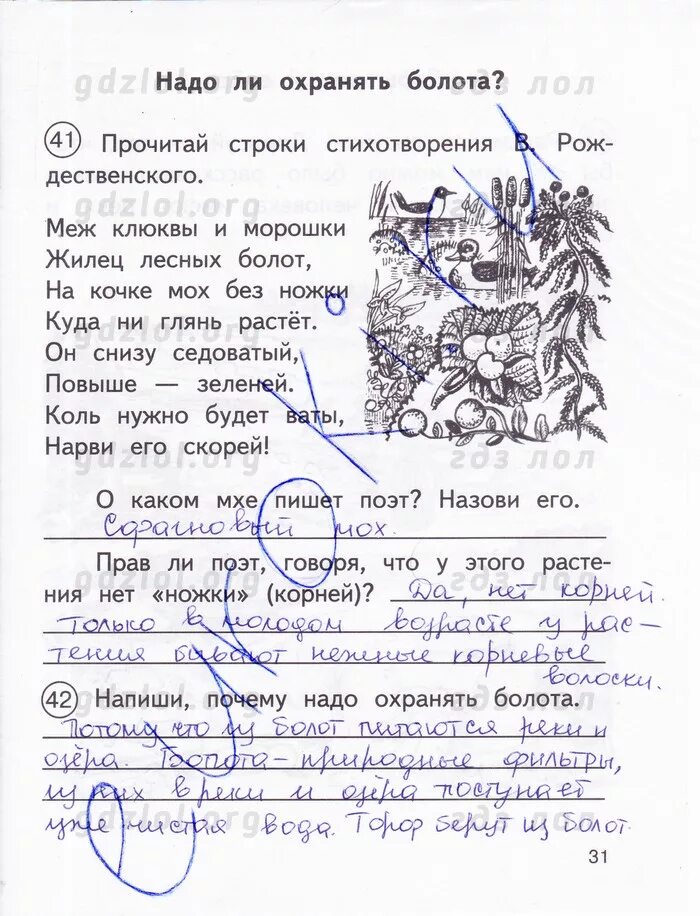 gdzlol.org гдз лол
Надо ли охранять болота?
41 Прочитай строки стихотворения В. Рож-
дественского.
gdzlol.org гдз лол
Меж клюквы и морошки
Жилец лесных болот,
На кочке мох без ножки
Куда ни глянь растёт.
gdzlol.org
Он снизу седоватый,
Повыше — зеленей.
Коль нужно будет ваты,
Нарви его скорей!
gdzlol.org гдз лол
О каком мхе пишет поэт? Назови его.
Сфагновый мох.
Прав ли поэт, говоря, что у этого расте-
gdzlol.org гдз лол
ния нет «ножки» (корней)? Да, нет корней.
Только в молодом возрасте у рас-
тения бывают нежные корневые
волоски.
42 Напиши, почему надо охранять болота.
gdzlol.org гдз лол
Потому что из болот питаются реки и
озёра. Болота - природные фильтры,
из них в реки и озёра поступает
gdzlol.org гдз лол
уже чистая вода. Торф берут из болот.
31